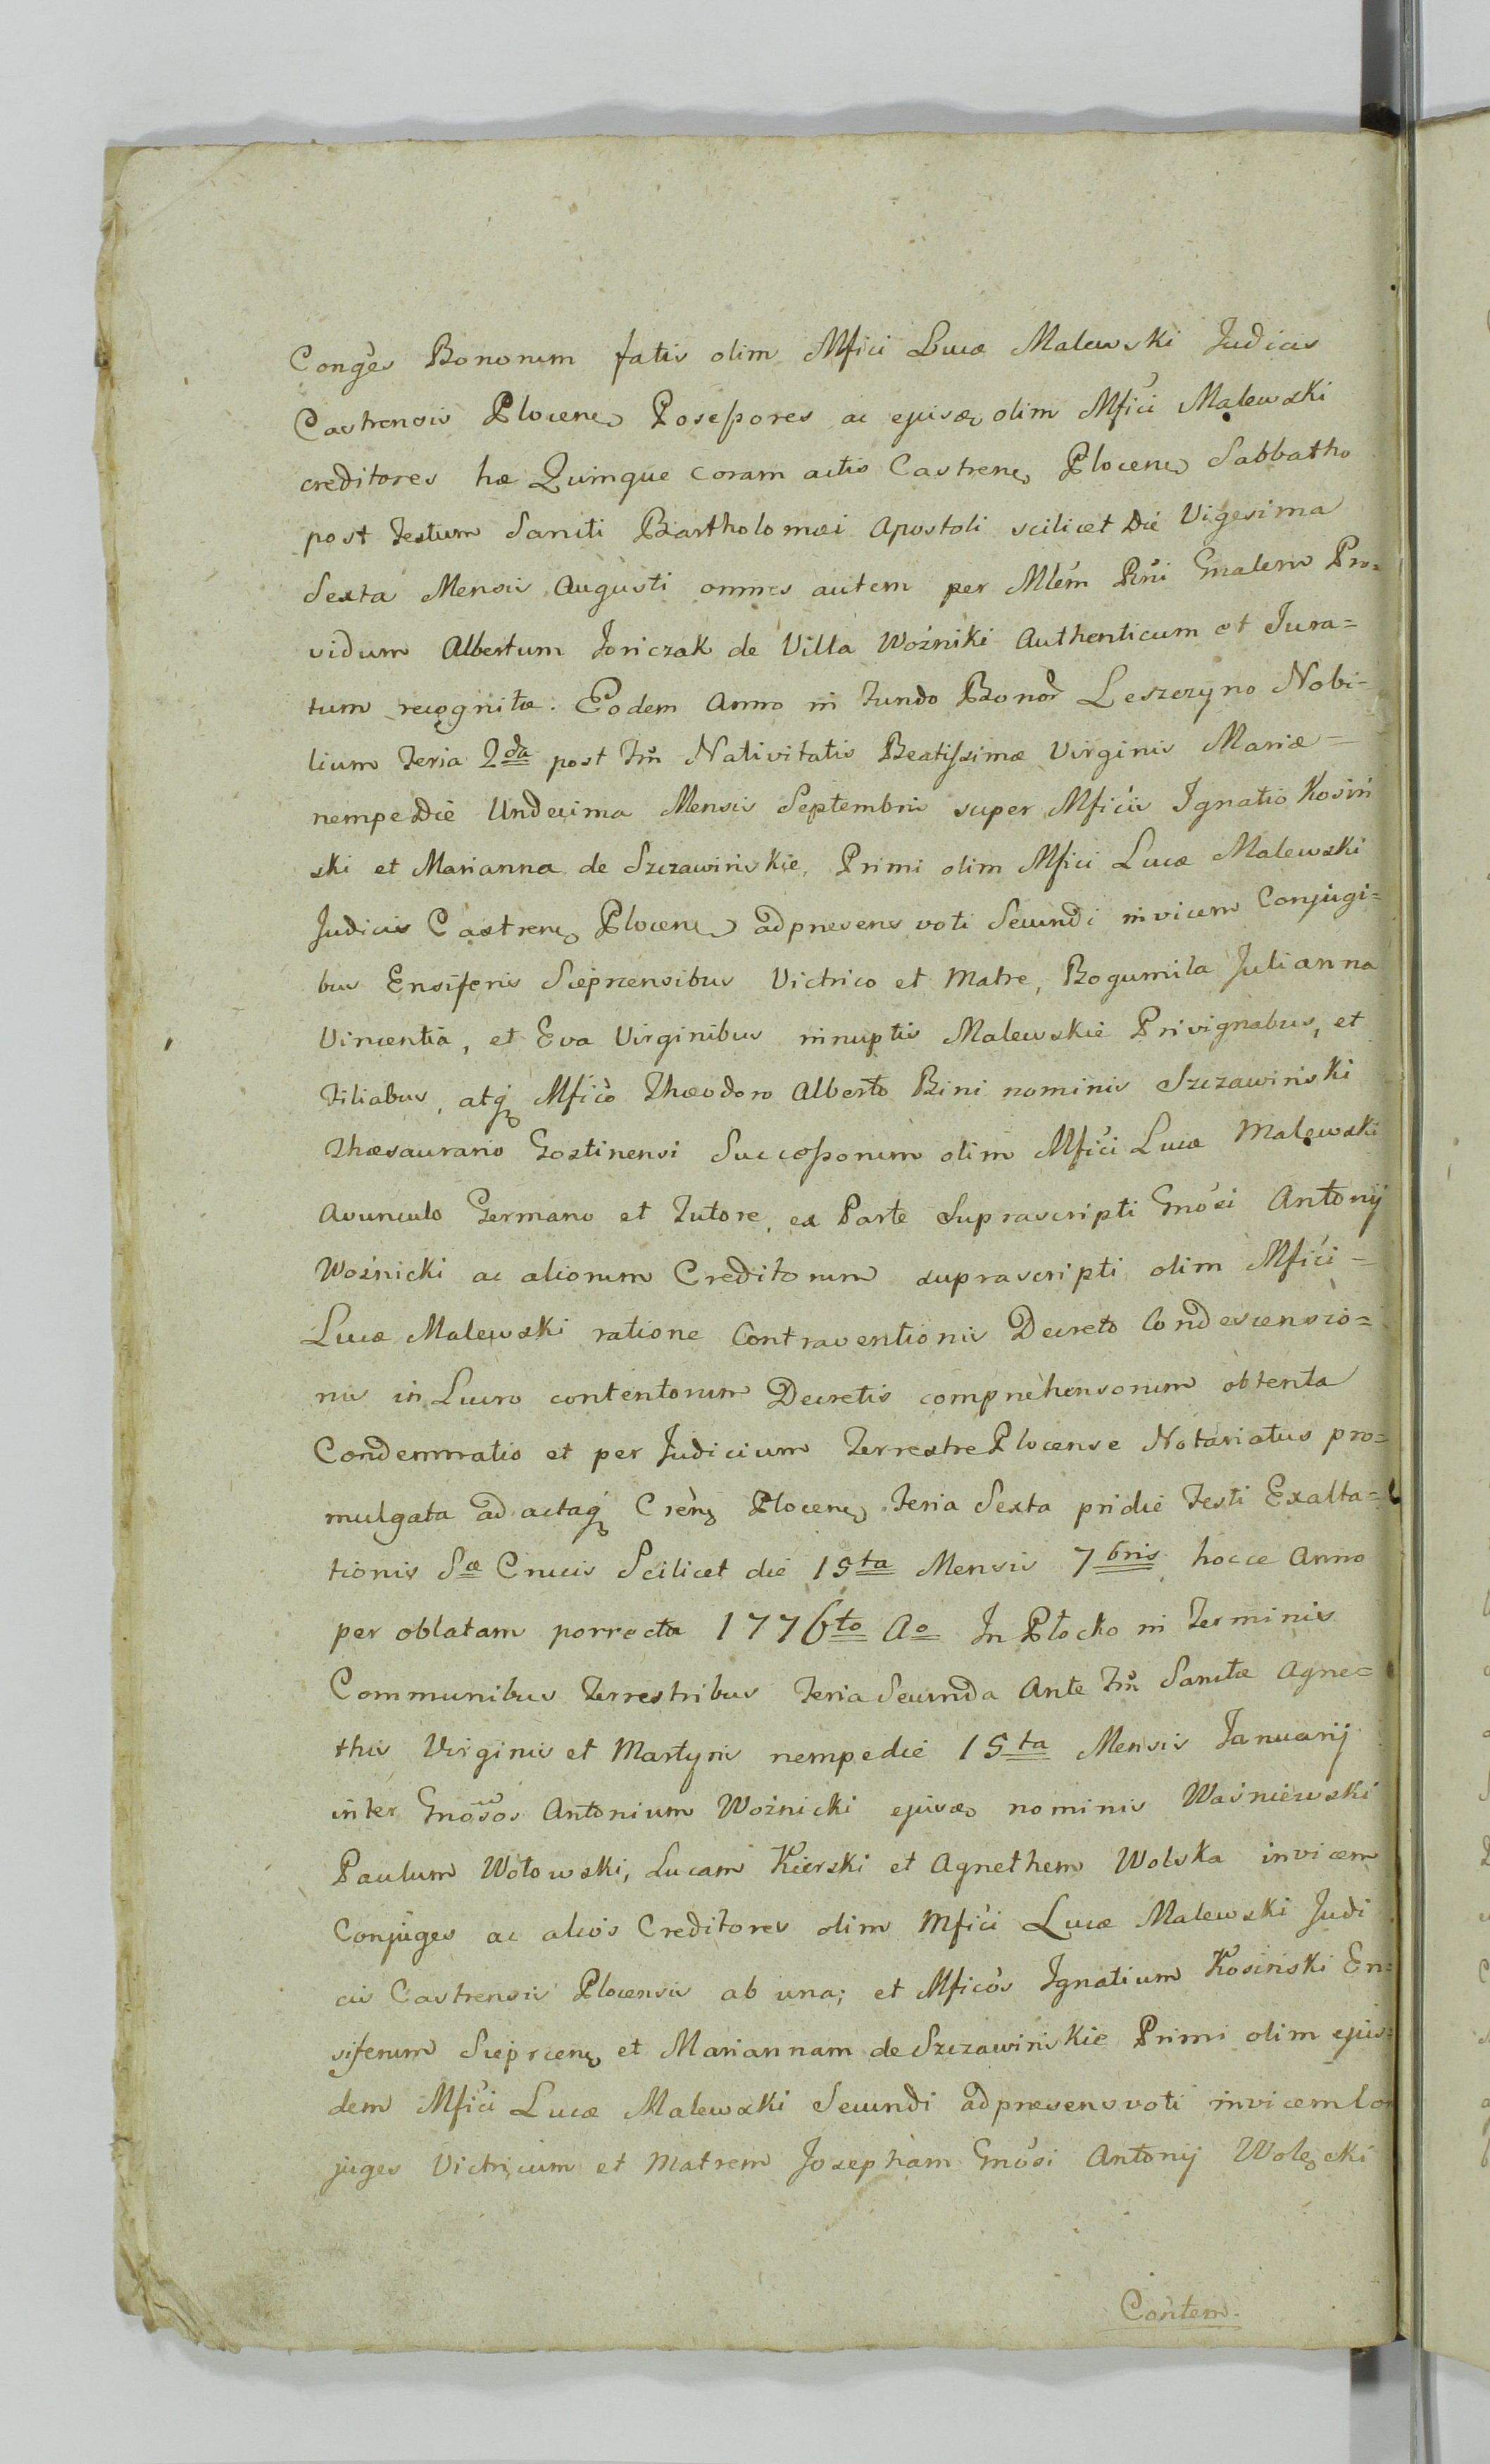 Conges Bonorum fatis olim Mfici Lucæ Malewski Judicis
Castrensis Plocens Posessores ac ejusd olim Mfici Malewski
creditores hæ Quinque coram actis Castrens Plocens Sabbatho
post Festum Sancti Bartholomæi Apostoli scilicet Die Vigesima
Sexta Mensis Augusti omnes autem per Mlem Rni Gnalem Pro=
vidum Albertum Joniczak de Villa Woźniki Authenticum et Jura=
tum recognitæ. Eodem Anno in Fundo Bonor Leszczyno Nobi=
lium Feria 2da post Fm Nativitatis Beatissimæ Virginis Mariæ =
nempe Die Undecima Mensis Septembris super Mficis Ignatio Kosiń
ski et Marianna de Szczawińskie, Primi olim Mfici Lucæ Malewski
Judicis Castrens Plocens ad presens voti Secundi invicem Conjugi=
bus Ensiferis Sieprcensibus Victrico et Matre, Bogumila Julianna
Vincentia, et Eva Virginibus innuptis Malewskie Privignabus, et
Filiabus, atq Mfico Theodoro Alberto Bini nominis Szczawiński
Thæsaurario Gostinensi Successorum olim Mfici Lucæ Malewski
Avunculo Germano et Tutore, ex Parte Suprascripti Gnosi Antonij
Woźnicki ac aliorum Creditorum suprascripti olim Mfici =
Lucæ Malewski ratione Contraventionis Decreto Condescensio=
nis in Lucro contentorum Decretis comprehensorum obtenta
Condemnatio et per Judicium Terrestre Plocense Notariatus pro=
mulgata ad actaq Crens Plocens Feria Sexta pridie Festi Exalta=
tionis Sæ Crucis Scilicet die 15ta Mensis 7bris hocce Anno
per oblatam porrecta 1776to Ao In Płocko in Terminis
Communibus Terrestribus Feria Secunda Ante Fm Sanctæ Agne=
this Virginis et Martyris nempe die 15ta Mensis Januarij
inter Gnosos Antonium Woźnicki ejusd nominis Waśniewski
Paulum Wołowski, Lucam Kierski et Agnethem Wolska invicem
Conjuges ac alios Creditores olim Mfici Lucæ Malewski Judi
cis Castrensis Plocensis ab una; et Mficos Ignatium Kosiński En=
siferum Sieprcens et Mariannam de Szczawińskie Primi olim ejus=
dem Mfici Lucæ Malewski Secundi ad præsens voti invicem Con
juges Victricum et Matrem Josepham Gnosi Antonij Wolęcki
Contem.